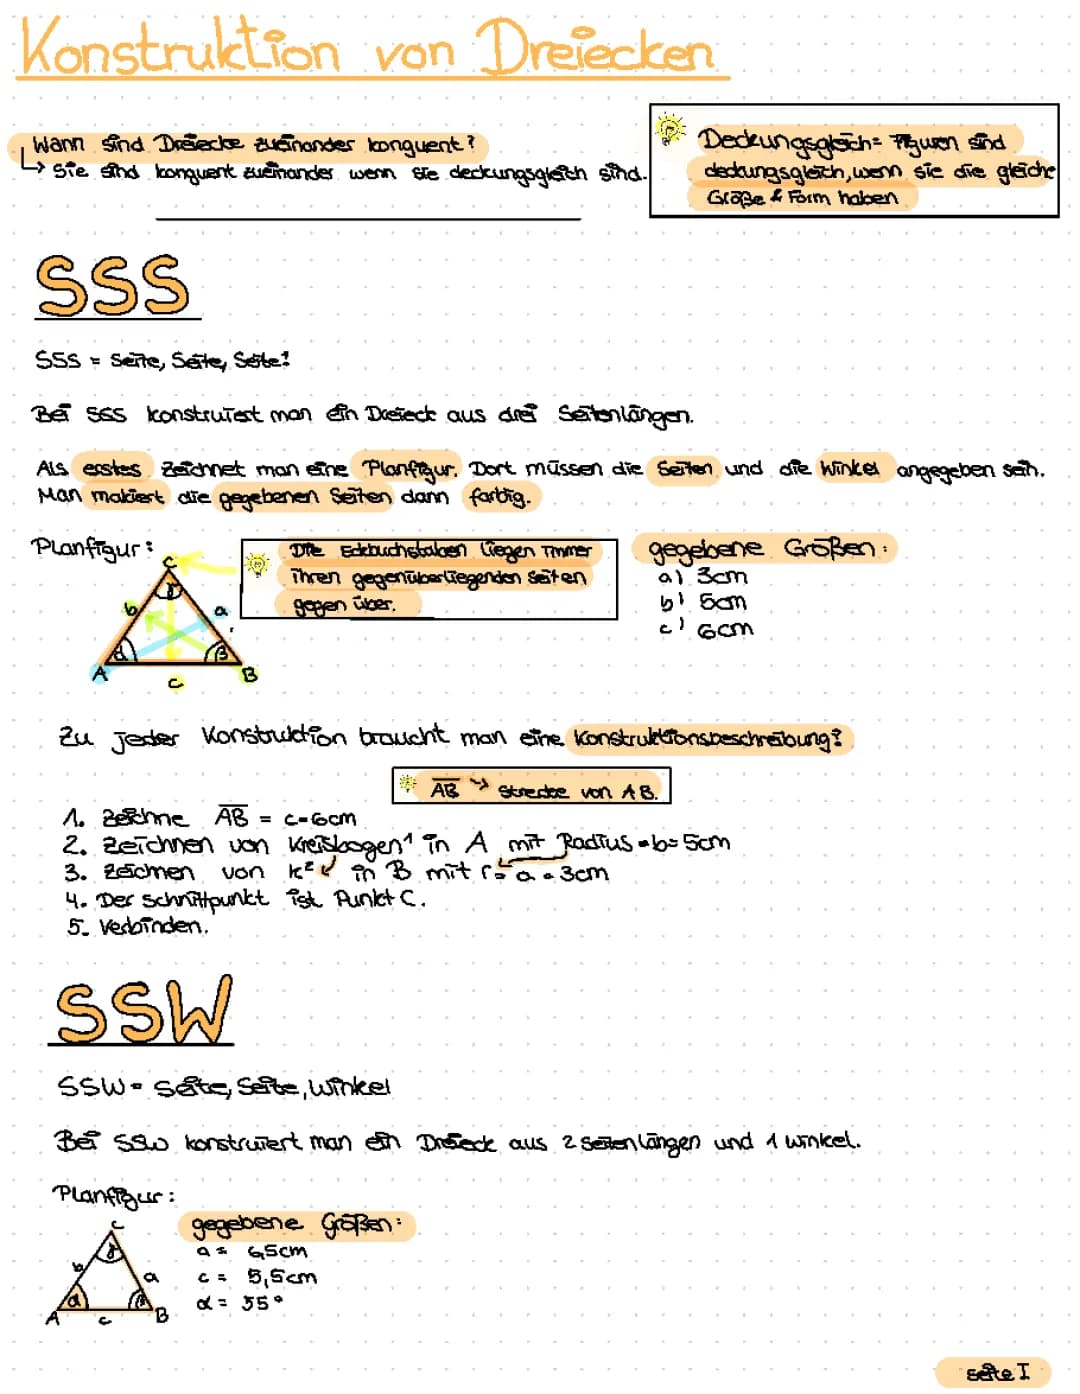 Konstruktion von Dreiecken
Wann sind Dreiecke zueinander konguent?
↳ Sie sind konguent zueinander wenn sie deckungsgleich sind.
Deckungsgleich= Figuren sind
deckungsgleich, wenn sie die gleiche
Größe & Form haben
SSS
SSS = Seite, Seite, Seite!
Bei SSS konstruiert man ein Dreieck aus drei Seitenlängen.
Als erstes zeichnet man eine Planfigur. Dort müssen die Seiten und die Winkel angegeben sein.
Man makiert die gegebenen Seiten dann farbig.
Planfigur:
C
γ
b
a
α
β
A
B
c
Die Eckbuchstaben liegen immer
ihren gegenüberliegenden Seiten
gegen über.
gegebene Größen:
a) 3cm
b) 5cm
c) 6cm
Zu jeder Konstruktion braucht man eine Konstruktionsbeschreibung!
A̅B̅ ↝ Strecke von AB.
1. Zeichne A̅B̅ = c=6cm
2. Zeichnen von Kreisbogen¹ in A mit Radius =b= 5cm
3. Zeichnen von k² in B mit r= a = 3cm
4. Der schnittpunkt ist Punkt C.
5. Verbinden.
SSW
SSW= Seite, Seite, Winkel
Bei SSW konstruiert man ein Dreieck aus 2 Seitenlängen und 1 winkel.
Planfigur:
C
γ
b
a
α
β
A
c
B
gegebene Größen:
a = 6,5cm
c = 5,5cm
α = 55°
Seite I